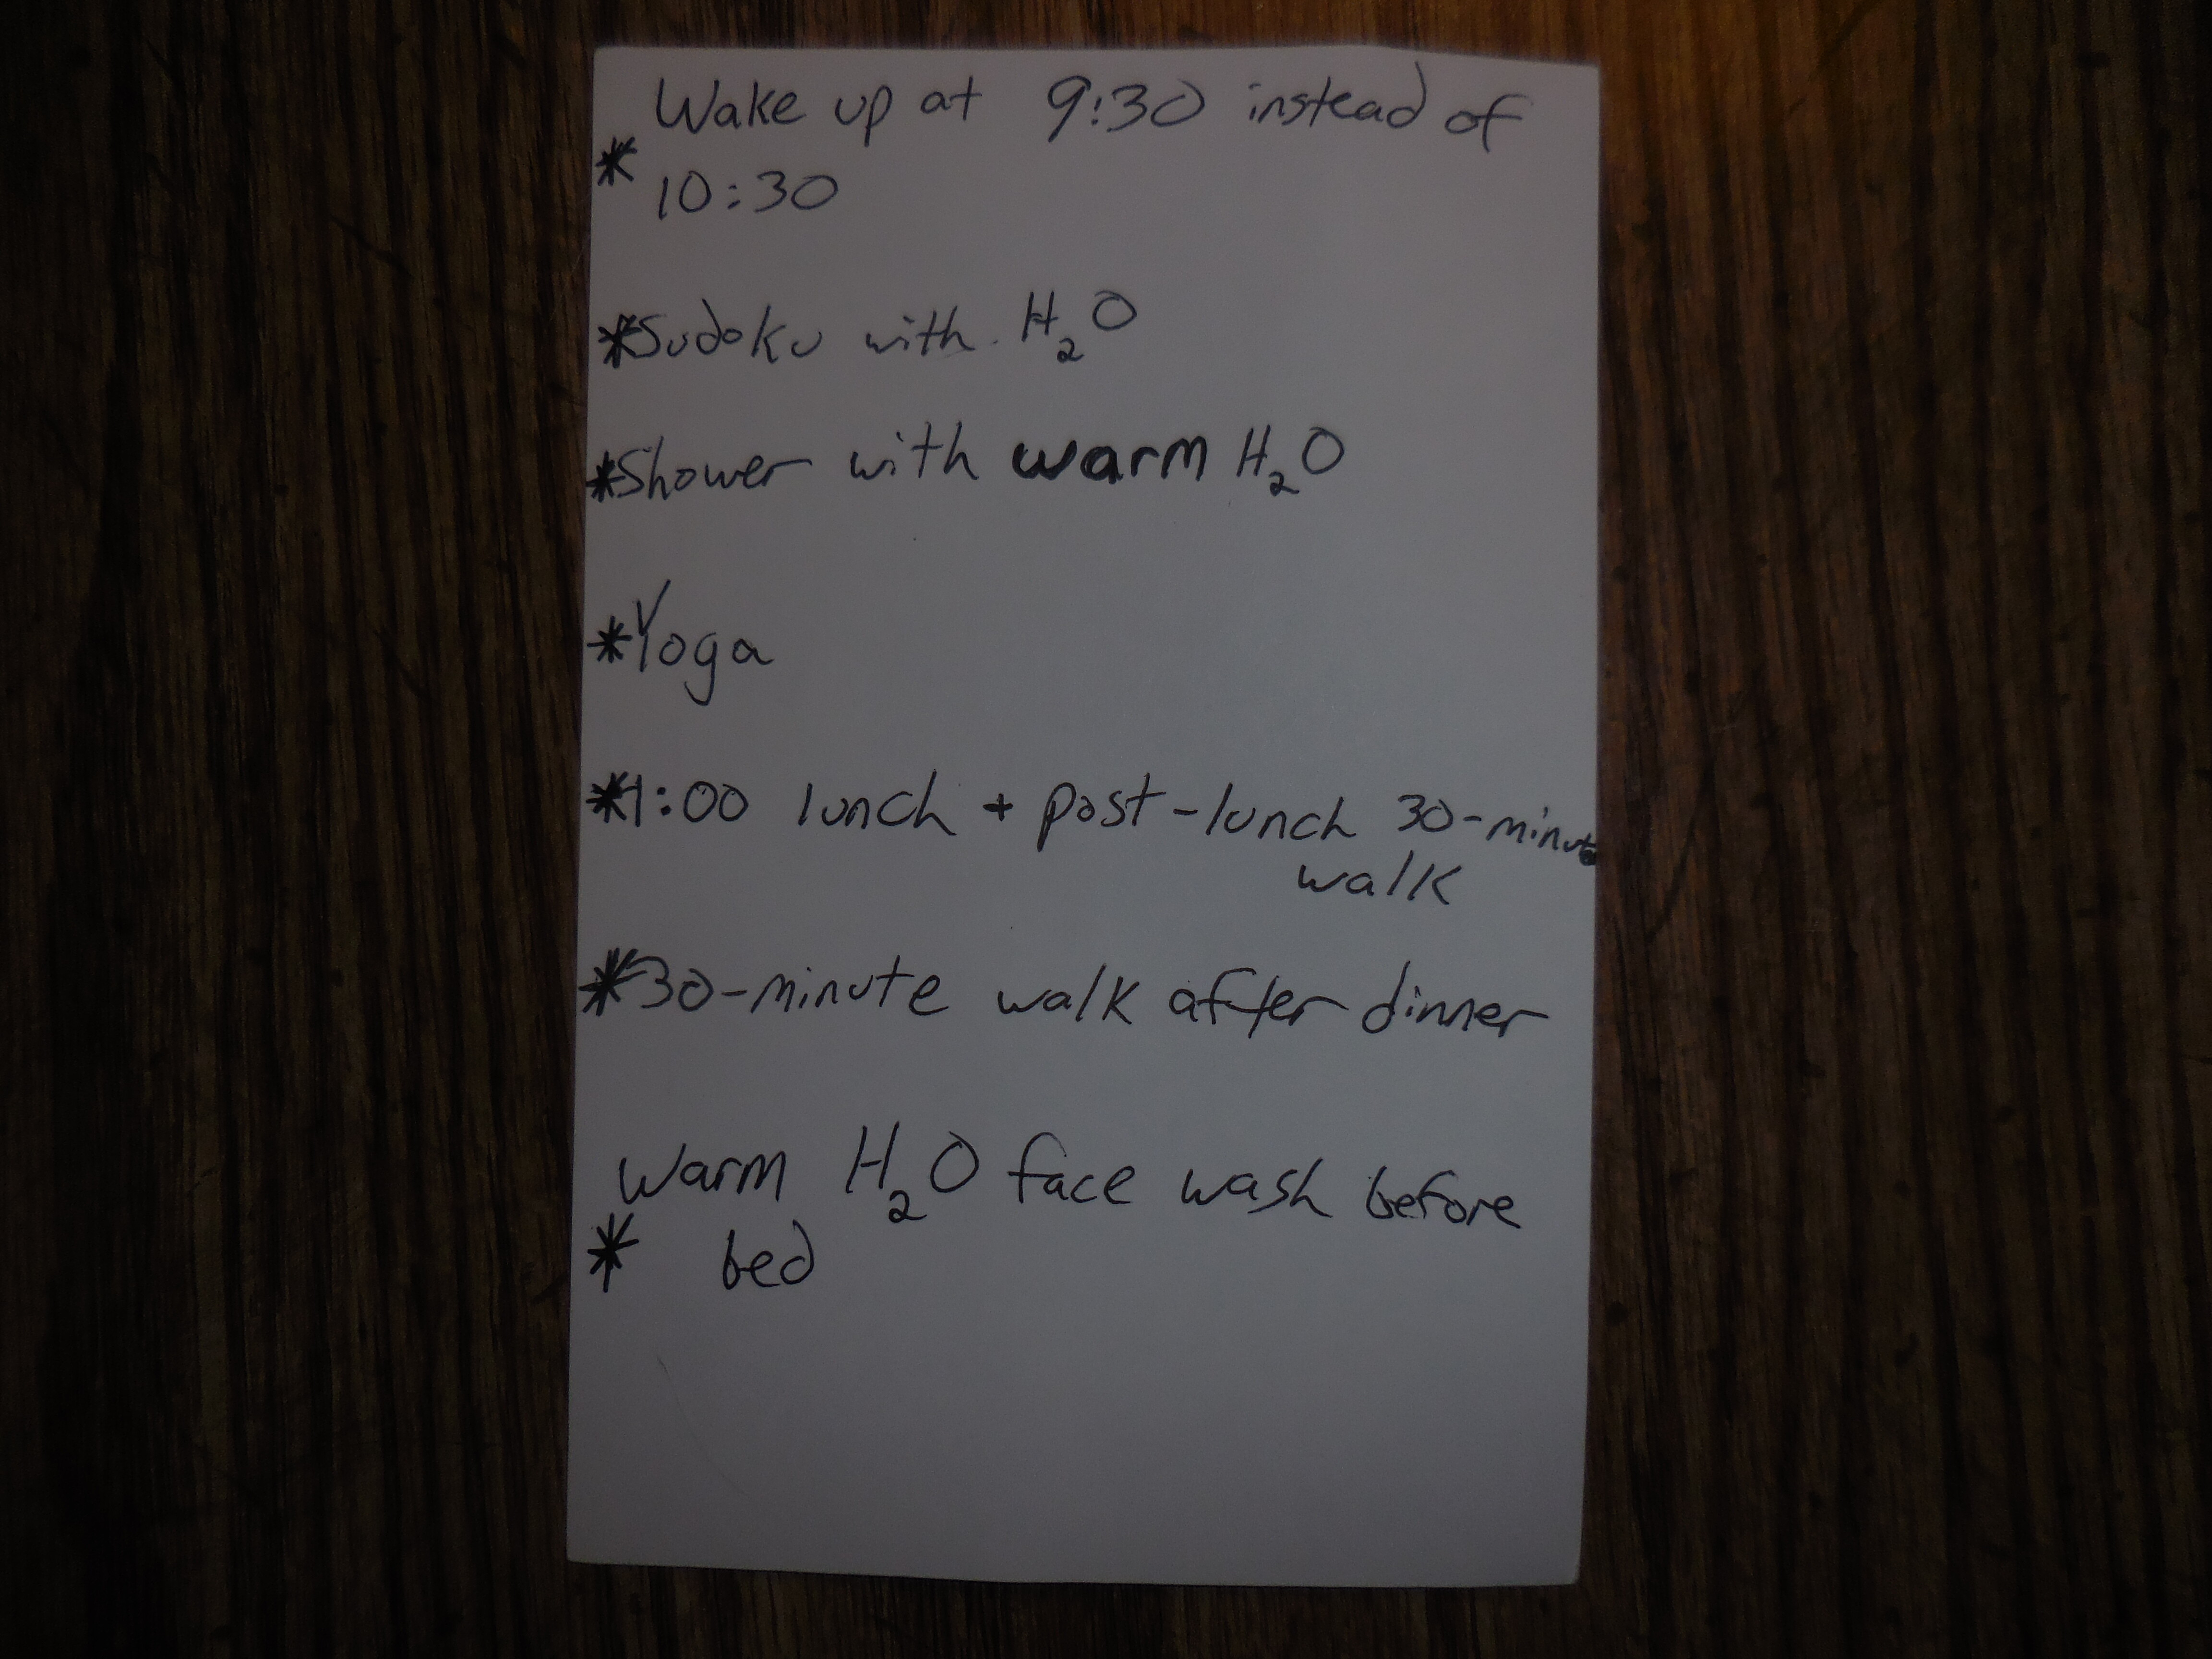 Wake up at 9:30 instead of
* 10:30
*Sudoku with H₂O
*Shower with warm H₂O
*Yoga
*1:00 lunch + post-lunch 30-minute
walk
*30-minute walk after dinner
Warm H₂O face wash before
* bed